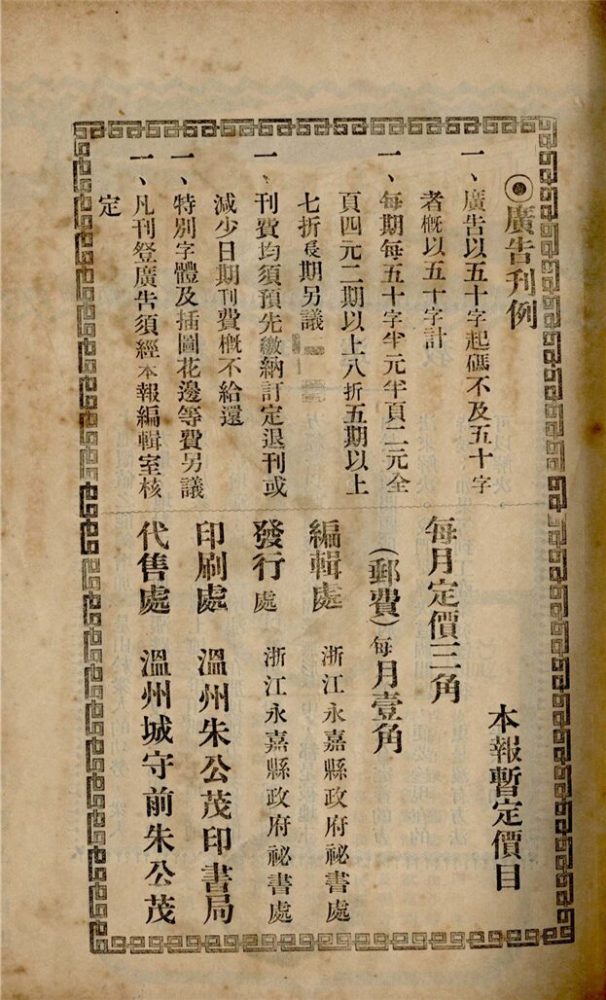 ◉廣告刊例
一、廣告以五十字起碼不及五十字
者概以五十字計
一、每期每五十字半元半頁二元全
頁四元二期以上八折五期以上
七折長期另議
一、刊費均須預先繳納訂定退刊或
減少日期刊費概不給還
一、特別字體及插圖花邊等費另議
一、凡刊登廣告須經本報編輯室核
定
本報暫定價目
每月定價三角
(郵費)每月壹角
編輯處 浙江永嘉縣政府祕書處
發行處 浙江永嘉縣政府祕書處
印刷處 溫州朱公茂印書局
代售處 溫州城守前朱公茂